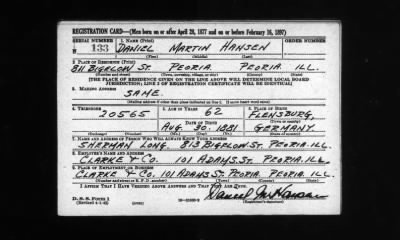 REGISTRATION CARD—(Men born on or after April 28, 1877 and on or before February 16, 1897)
SERIAL NUMBER 1. NAME (Print) ORDER NUMBER
U 133 DANIEL MARTIN HANSEN
(First) (Middle) (Last)
2. PLACE OF RESIDENCE (Print)
811 BIGELOW ST. PEORIA. PEORIA. ILL.
(Number and street) (Town, township, village, or city) (County) (State)
[THE PLACE OF RESIDENCE GIVEN ON THE LINE ABOVE WILL DETERMINE LOCAL BOARD
JURISDICTION; LINE 2 OF REGISTRATION CERTIFICATE WILL BE IDENTICAL]
3. MAILING ADDRESS
SAME.
[Mailing address if other than place indicated on line 2. If same insert word same]
4. TELEPHONE 5. AGE IN YEARS 6. PLACE OF BIRTH
20565 62 FLENSBURG,
DATE OF BIRTH (Town or county)
AUG. 30. 1881 GERMANY.
(Mo.) (Day) (Yr.) (State or country)
7. NAME AND ADDRESS OF PERSON WHO WILL ALWAYS KNOW YOUR ADDRESS
SHERMAN LONG. 813 BIGELOW ST. PEORIA. ILL.
8. EMPLOYER'S NAME AND ADDRESS
CLARKE & CO. 101 ADAMS ST. PEORIA. ILL.
9. PLACE OF EMPLOYMENT OR BUSINESS
CLARKE & CO. 101 ADAMS ST. PEORIA. PEORIA. ILL.
(Number and street or R. F. D. number) (Town) (County) (State)
I AFFIRM THAT I HAVE VERIFIED ABOVE ANSWERS AND THAT THEY ARE TRUE.
D. S. S. Form 1
(Revised 4-1-42)
Daniel M. Hansen
(Registrant's signature)